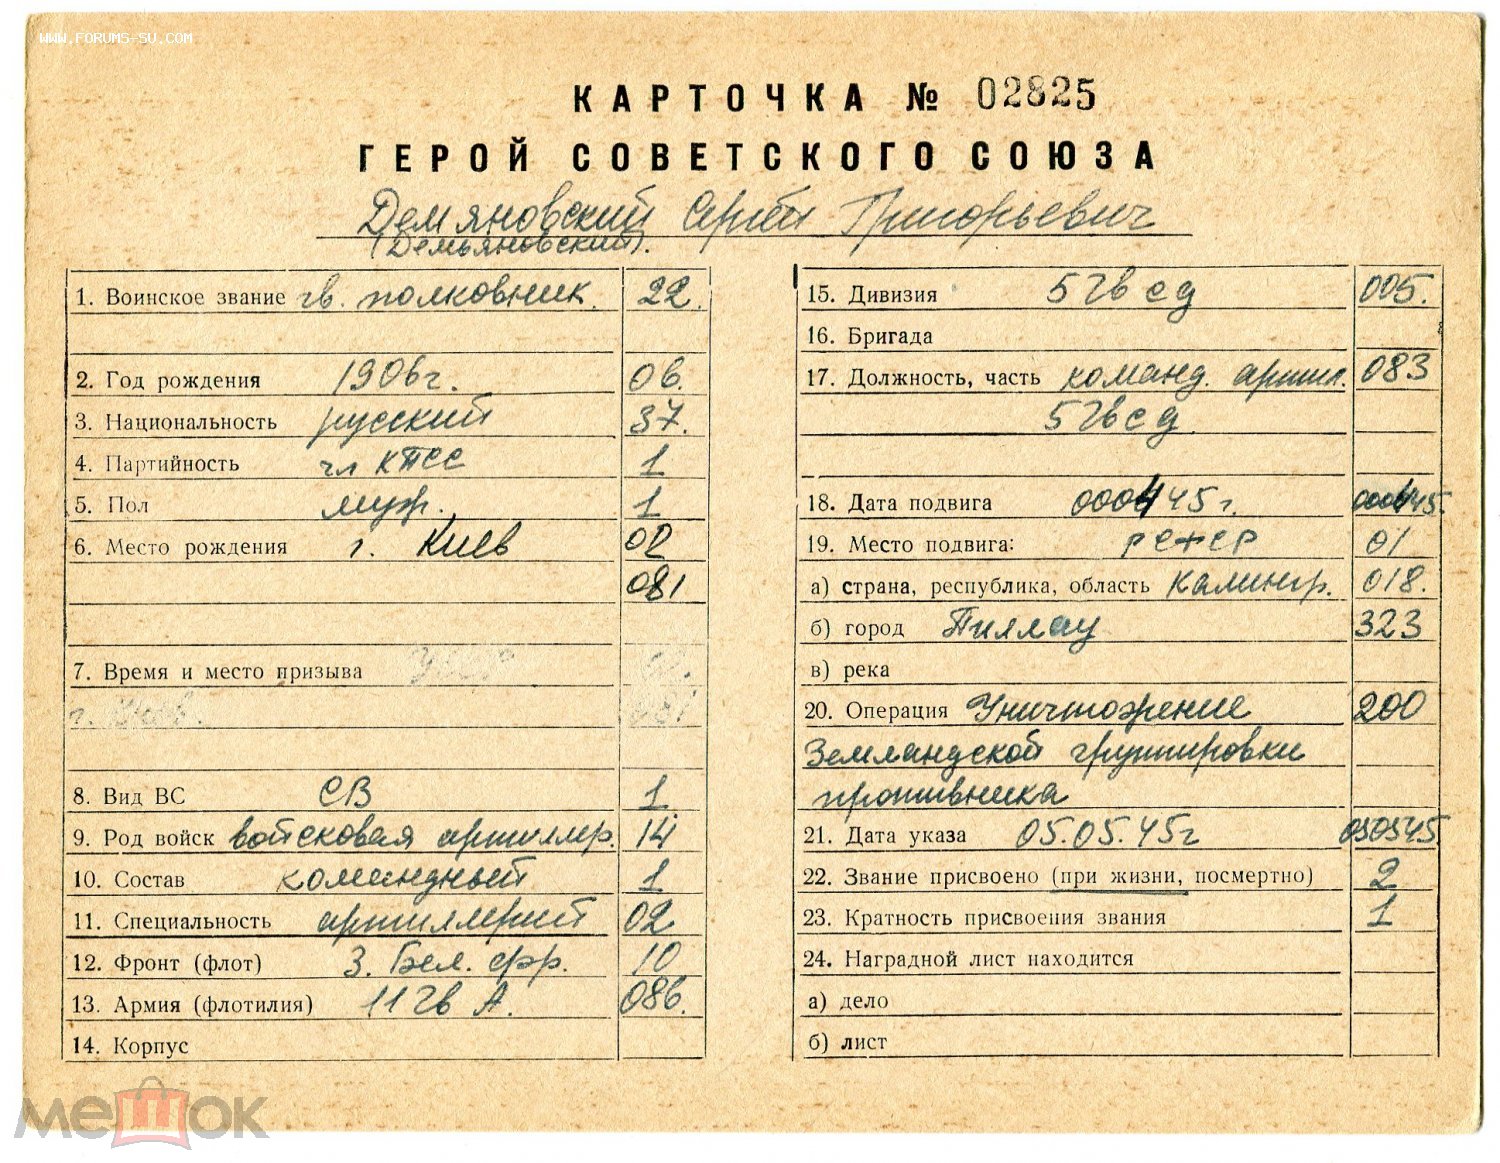 www.forums-su.com
КАРТОЧКА № 02825
ГЕРОЙ СОВЕТСКОГО СОЮЗА
Демяновский Сергей Григорьевич
(Демьяновский).
1. Воинское звание гв. полковник. 22.
2. Год рождения 1906г. 06.
3. Национальность русский 37.
4. Партийность чл КПСС 1
5. Пол муж. 1
6. Место рождения г. Киев 02
081
7. Время и место призыва УССР
г. Киев.
8. Вид ВС СВ 1
9. Род войск войсковая артиллер. 14
10. Состав командный 1
11. Специальность артиллерист 02
12. Фронт (флот) 3. Бел. фр. 10
13. Армия (флотилия) 11 гв А. 086.
14. Корпус
15. Дивизия 5 гв сд 005.
16. Бригада
17. Должность, часть команд. артил. 083
5 гв сд
18. Дата подвига 000445г. 000445.
19. Место подвига: РСФСР 01
а) страна, республика, область Калингр. 018.
б) город Пиллау 323
в) река
20. Операция Уничтожение 200
Земландской группировки
противника
21. Дата указа 05.05.45г 050545.
22. Звание присвоено (при жизни, посмертно) 2
23. Кратность присвоения звания 1
24. Наградной лист находится
а) дело
б) лист
мешок